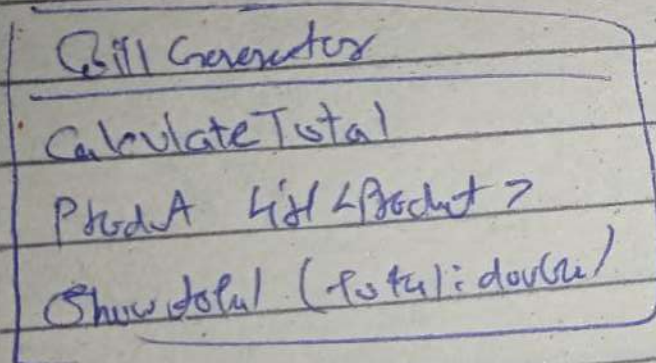 Bill Generator
CalculateTotal
Product List <Product>
Show total (total: double)